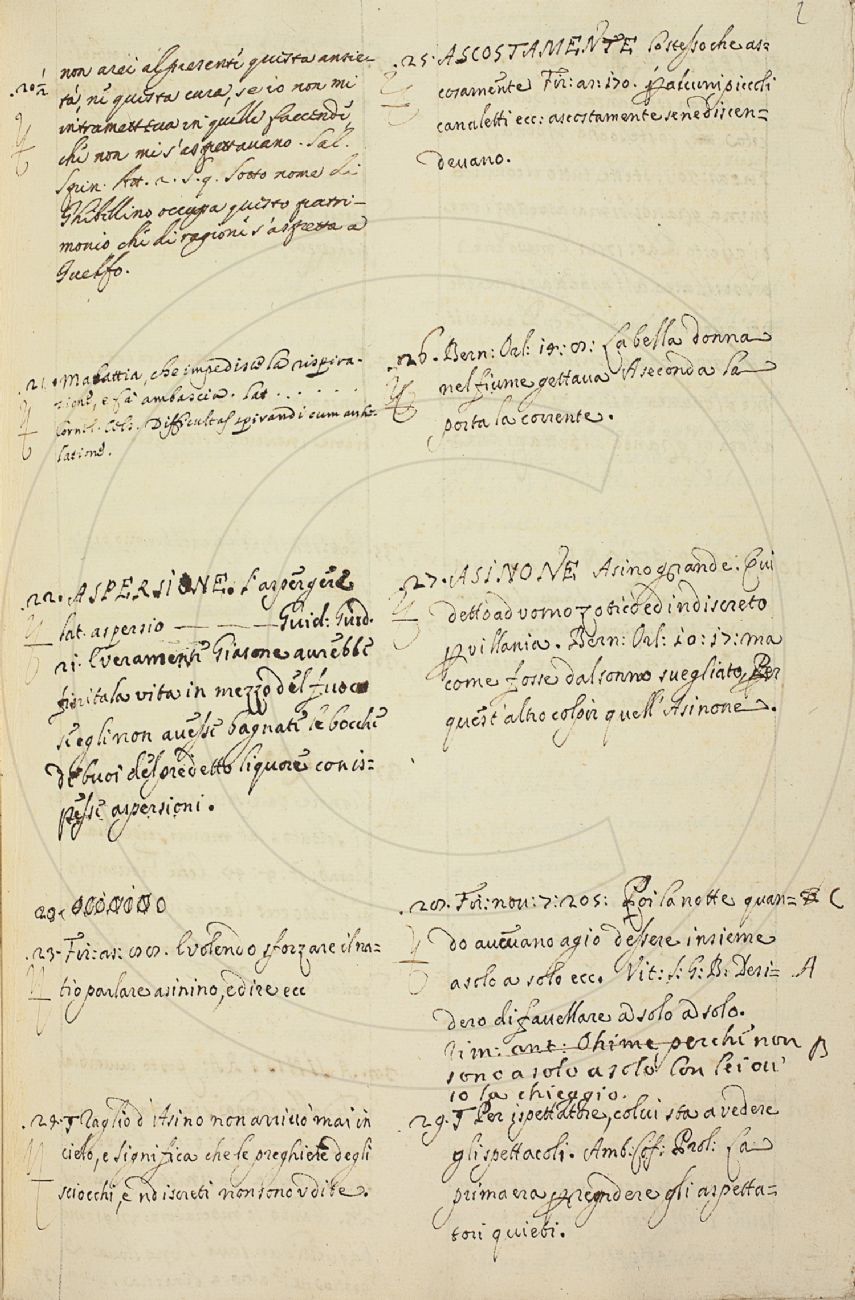 2
.20 1/2 non avei alpresenti questa ansie-
tà, ne questa cura, se io non mi
intrametteva in quelle faccende
che non mi s'aspettavano. Sal.
Spin. Att. 2. s. 9. Sotto nome di
Ghibellino occupa questo patri-
monio che di ragione s'aspetta a
Guelfo.
.21. Malattia, che impedisce la respira-
zione, e fà ambascia. lat . . . . . .
Cornel. Cels. Difficultas spirandi cum anhe-
latione.
.22. ASPERSIONE. l'aspergere
lat. aspersio — — Guid: Giud.
Everamente Giasone aurebbe
finita la vita in mezzo del fuoco
se egli non avesse bagnate le bocche
de buoi del predetto liquore con is-
pesse aspersioni.
.23. Fir: as: E volendo sforzare il na-
tio parlare asinino, e dire ecc
.24. Raglio d'Asino non arrivò mai in
cielo, e significa che le preghiere degli
sciocchi, e indiscreti non sono udite.
.25. ASCOSTAMENTE lo stesso che as-
cosamente Fir: as: 170. p alcuni piccoli
canaletti ecc: ascostamente senediscen-
devano.
.26. Bern: Orl: La bella donna
nel fiume gettava A seconda la
porta la corrente.
.27. ASINONE Asino grande. Qui
detto ad uomo zotico ed indiscreto
p villania. Bern: Orl: 10: 17: ma
come fosse dal sonno svegliato Per
quest'altro colpir quell'Asinone.
.28. Fir: nov: 7: 205: Poi la notte quan- C
do avevano agio dessere insieme
a solo a solo ecc. Vit: S: G: B: Desi- A
dero di favellare a solo a solo.
Rim: ant: Ohime perche non B
sono a solo a solo Con lei ov'
io la chieggio.
29. Per ispettatore, colui sta a vedere
gli spettacoli. Amb: Cof: Prol: La
prima era p rendere gli aspetta-
tori quieti.